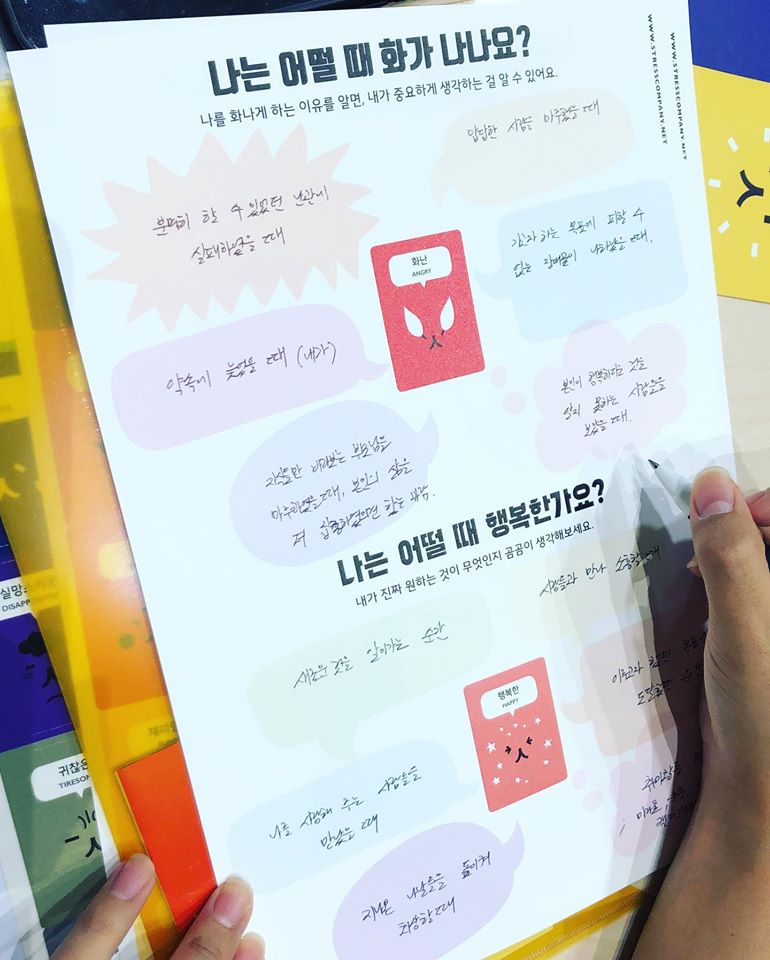 나는 어떨 때 화가 나나요?
나를 화나게 하는 이유를 알면, 내가 중요하게 생각하는 걸 알 수 있어요.
WWW.STRESSCOMPANY.NET
WWW.STRESSCOMPANY.NET
답답한 사람을 마주했을 때
분명히 할 수 있었던 난관에
실패하였을 때
가고자 하는 목표에 피할 수
없는 장애물이 나타났을 때.
화난
ANGRY
약속에 늦었을 때 (내가)
본인이 행복하다는 것을
알지 못하는 사람들을
보았을 때.
자식들만 바라보는 부모님을
마주하였을 때, 본인의 삶을
더 집중하였으면 하는 생각.
나는 어떨 때 행복한가요?
내가 진짜 원하는 것이 무엇인지 곰곰이 생각해보세요.
사람들과 만나 소통할 때
새로운 것을 알아가는 순간
이루고자 했던
도달했던 순간
행복한
HAPPY
나를 사랑해 주는 사람들을
만났을 때
지나온 나날들을 돌이켜
회상할 때
DISAPP
귀찮은
TIRESOM
재미있